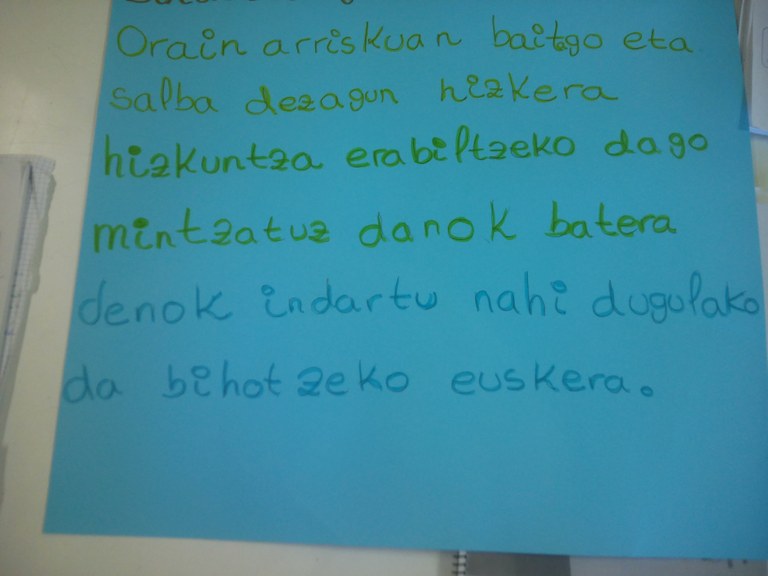 Orain arriskuan baitago eta
salba dezagun hizkera
hizkuntza erabiltzeko dago
mintzatuz danok batera
denok indartu nahi dugulako
da bihotzeko euskera.